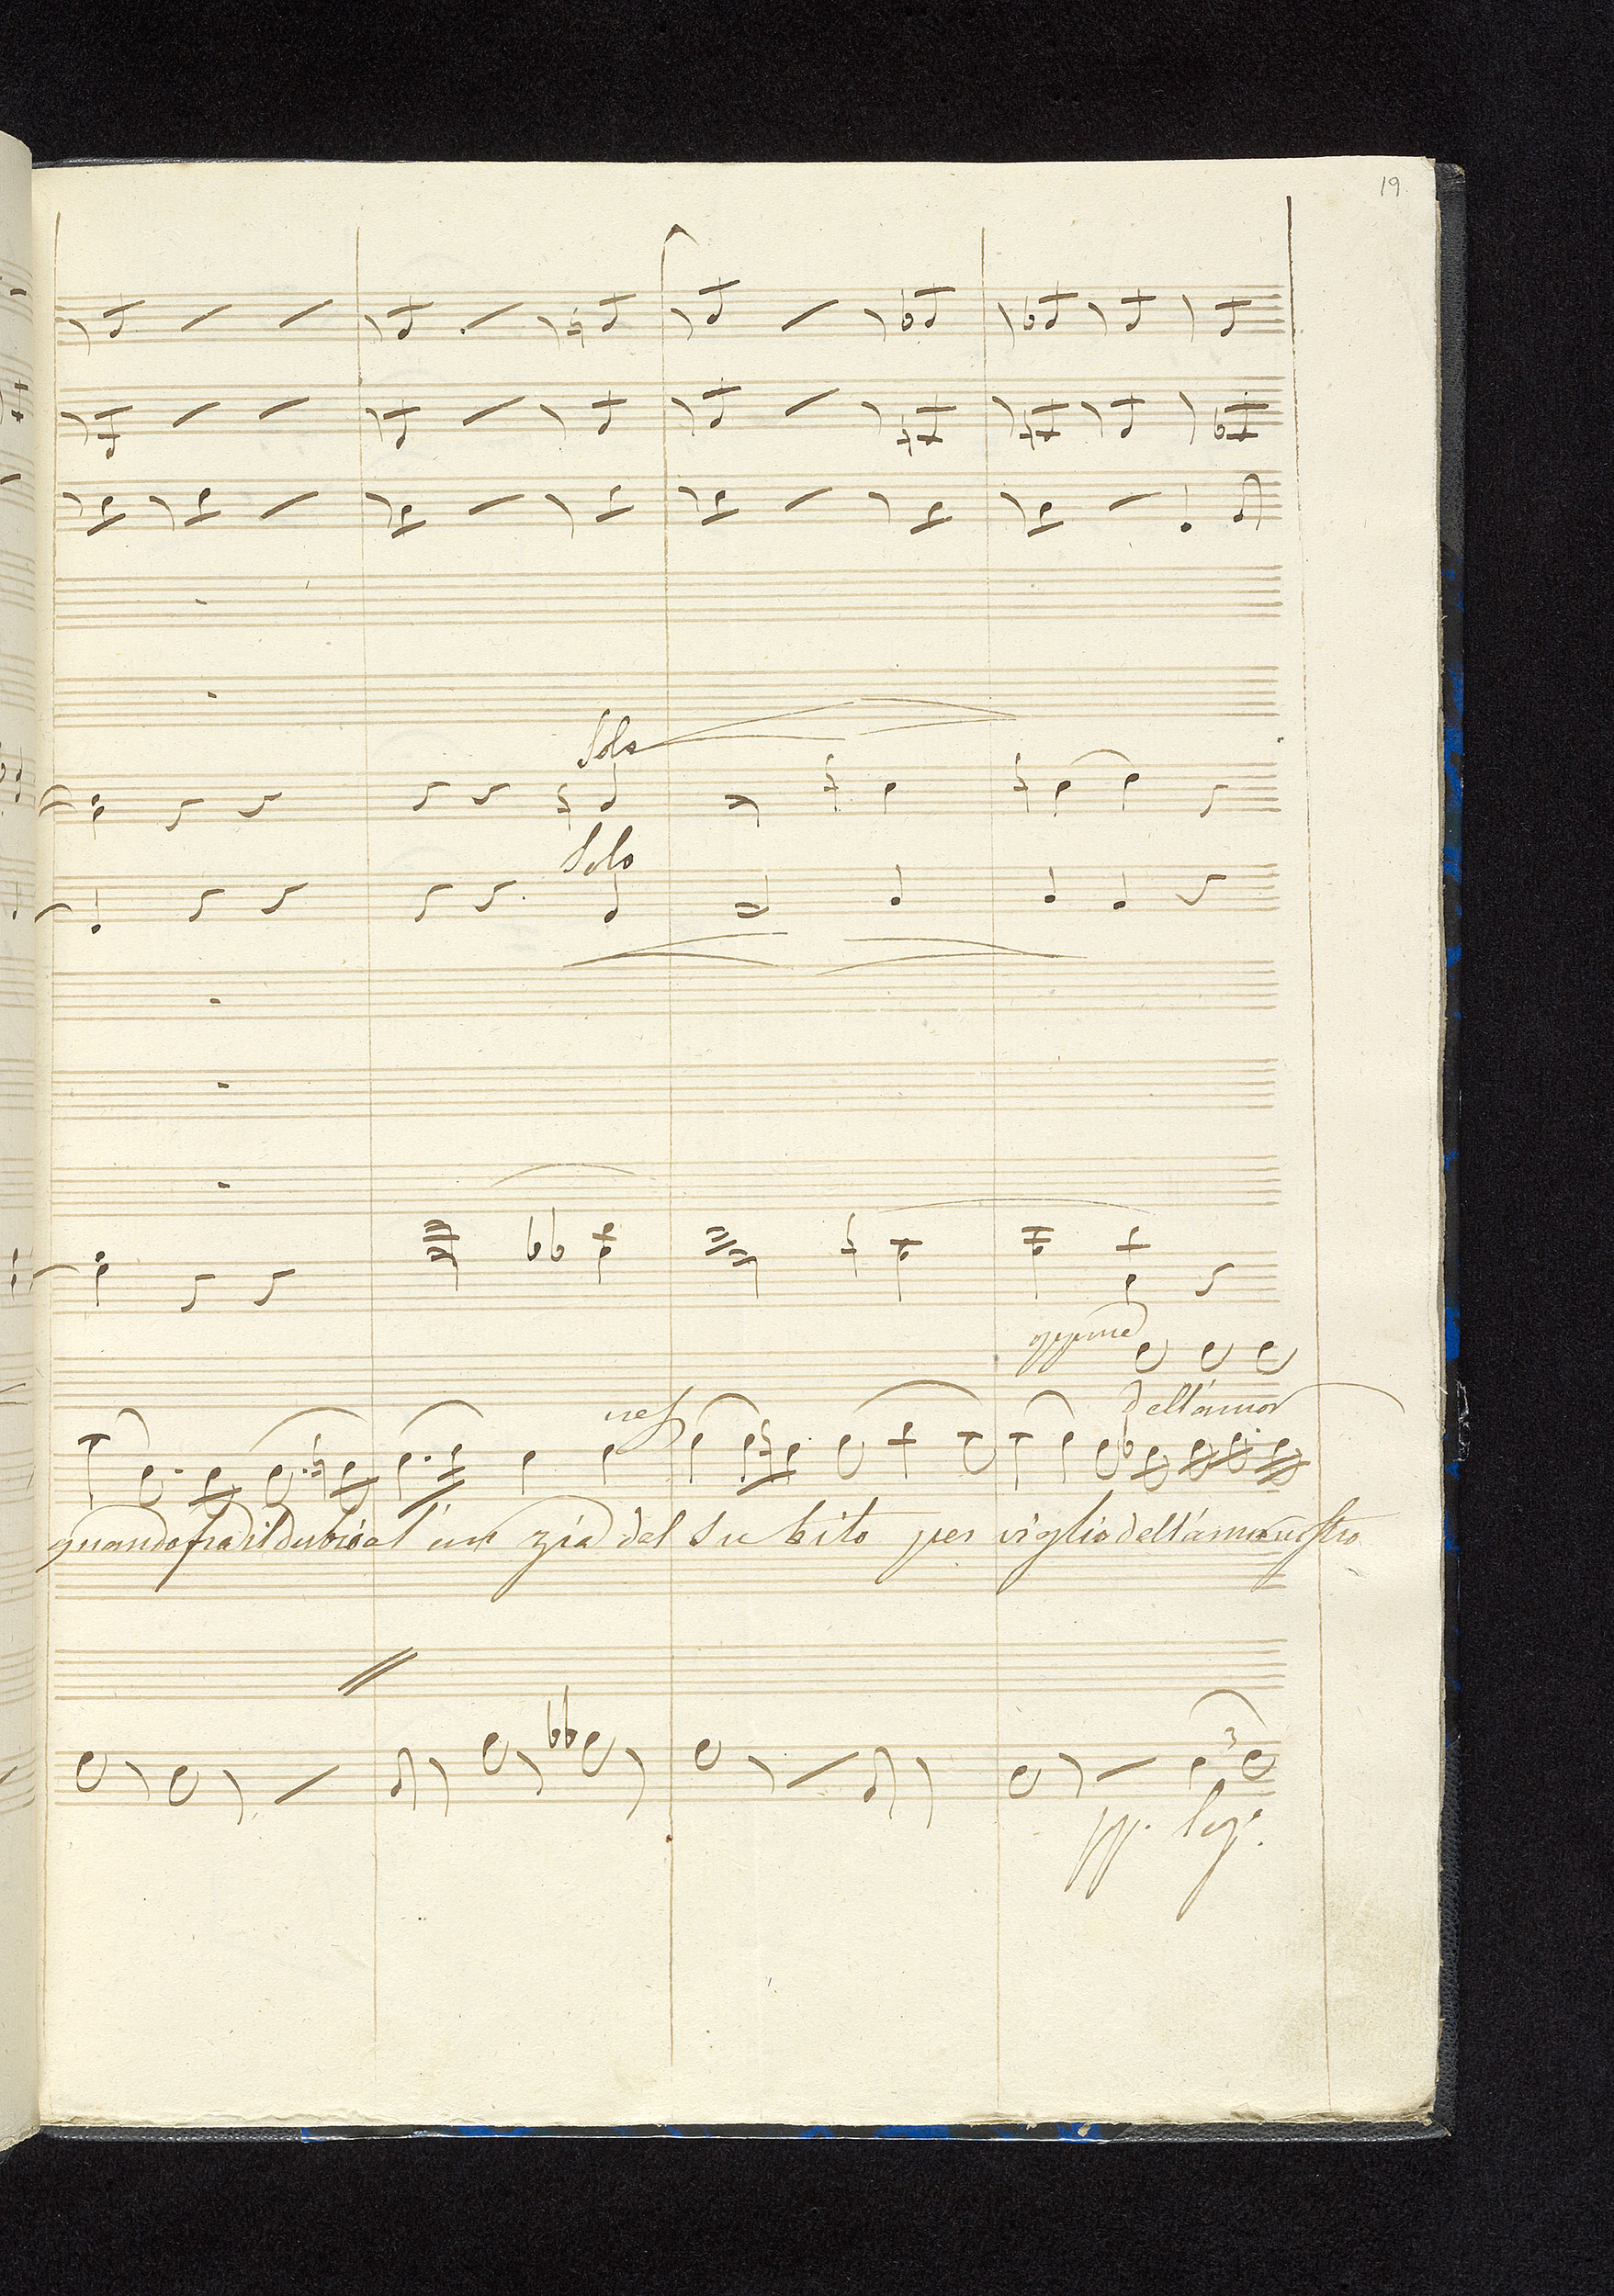 19
Solo
Solo
oppure
dell'amor
nel
quando fra il dubio e l'an zia del su bito per viglio dell'amor nostro
3
pp. leg.